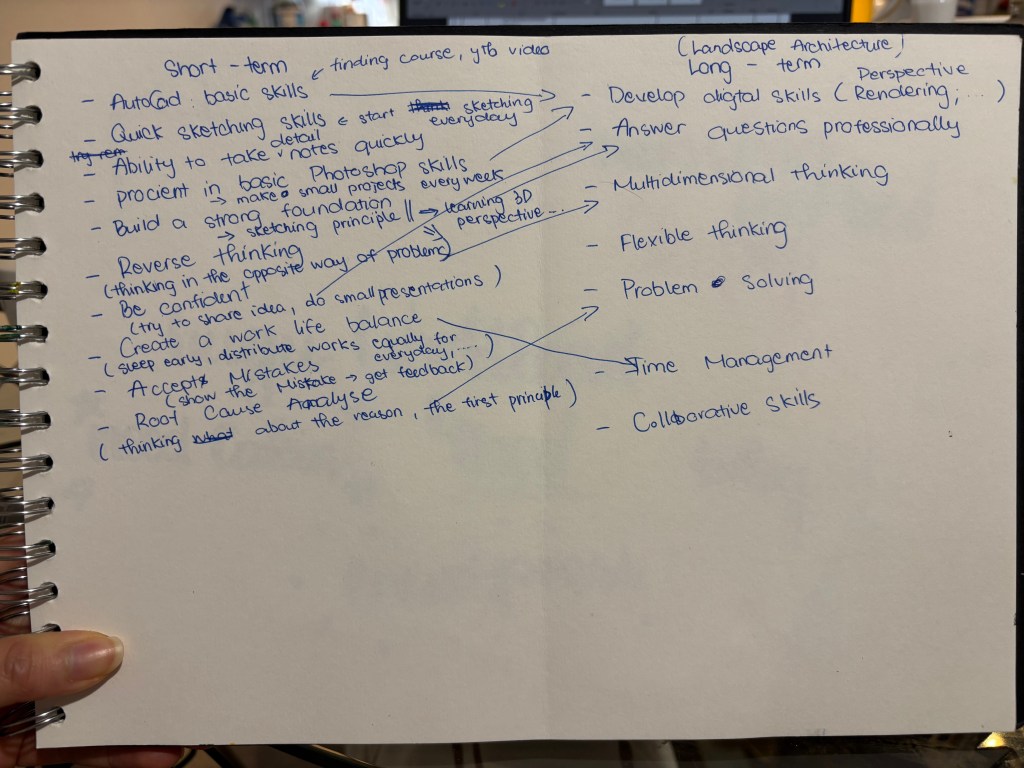 Short - term
finding course, ytb video
- AutoCad : basic skills
- Quick sketching skills
start sketching everyday
- Ability to take detail notes quickly
- procient in basic Photoshop skills
→ make small projects every week
- Build a strong foundation
→ sketching principle || → learning 3D
perspective...
- Reverse thinking
(thinking in the opposite way of problem)
- Be confident
(try to share idea, do small presentations)
- Create a work life balance
(sleep early, distribute works equally for
everyday, ....)
- Accept Mistakes
(show the Mistake → get feedback)
- Root Cause Analyse
(thinking about the reason, the first principle)
(Landscape Architecture)
Long - term
Perspective
- Develop digital skills (Rendering, ...)
- Answer questions professionally
- Multidimensional thinking
- Flexible thinking
- Problem solving
- Time Management
- Collaborative skills